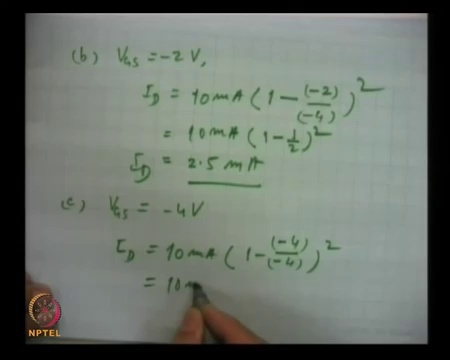 (b) V_GS = -2 V,
I_D = 10 mA (1 - (-2)/(-4))^2
= 10 mA (1 - 1/2)^2
I_D = 2.5 mA
(c) V_GS = -4V
I_D = 10 mA (1 - (-4)/(-4))^2
= 10 m
NPTEL